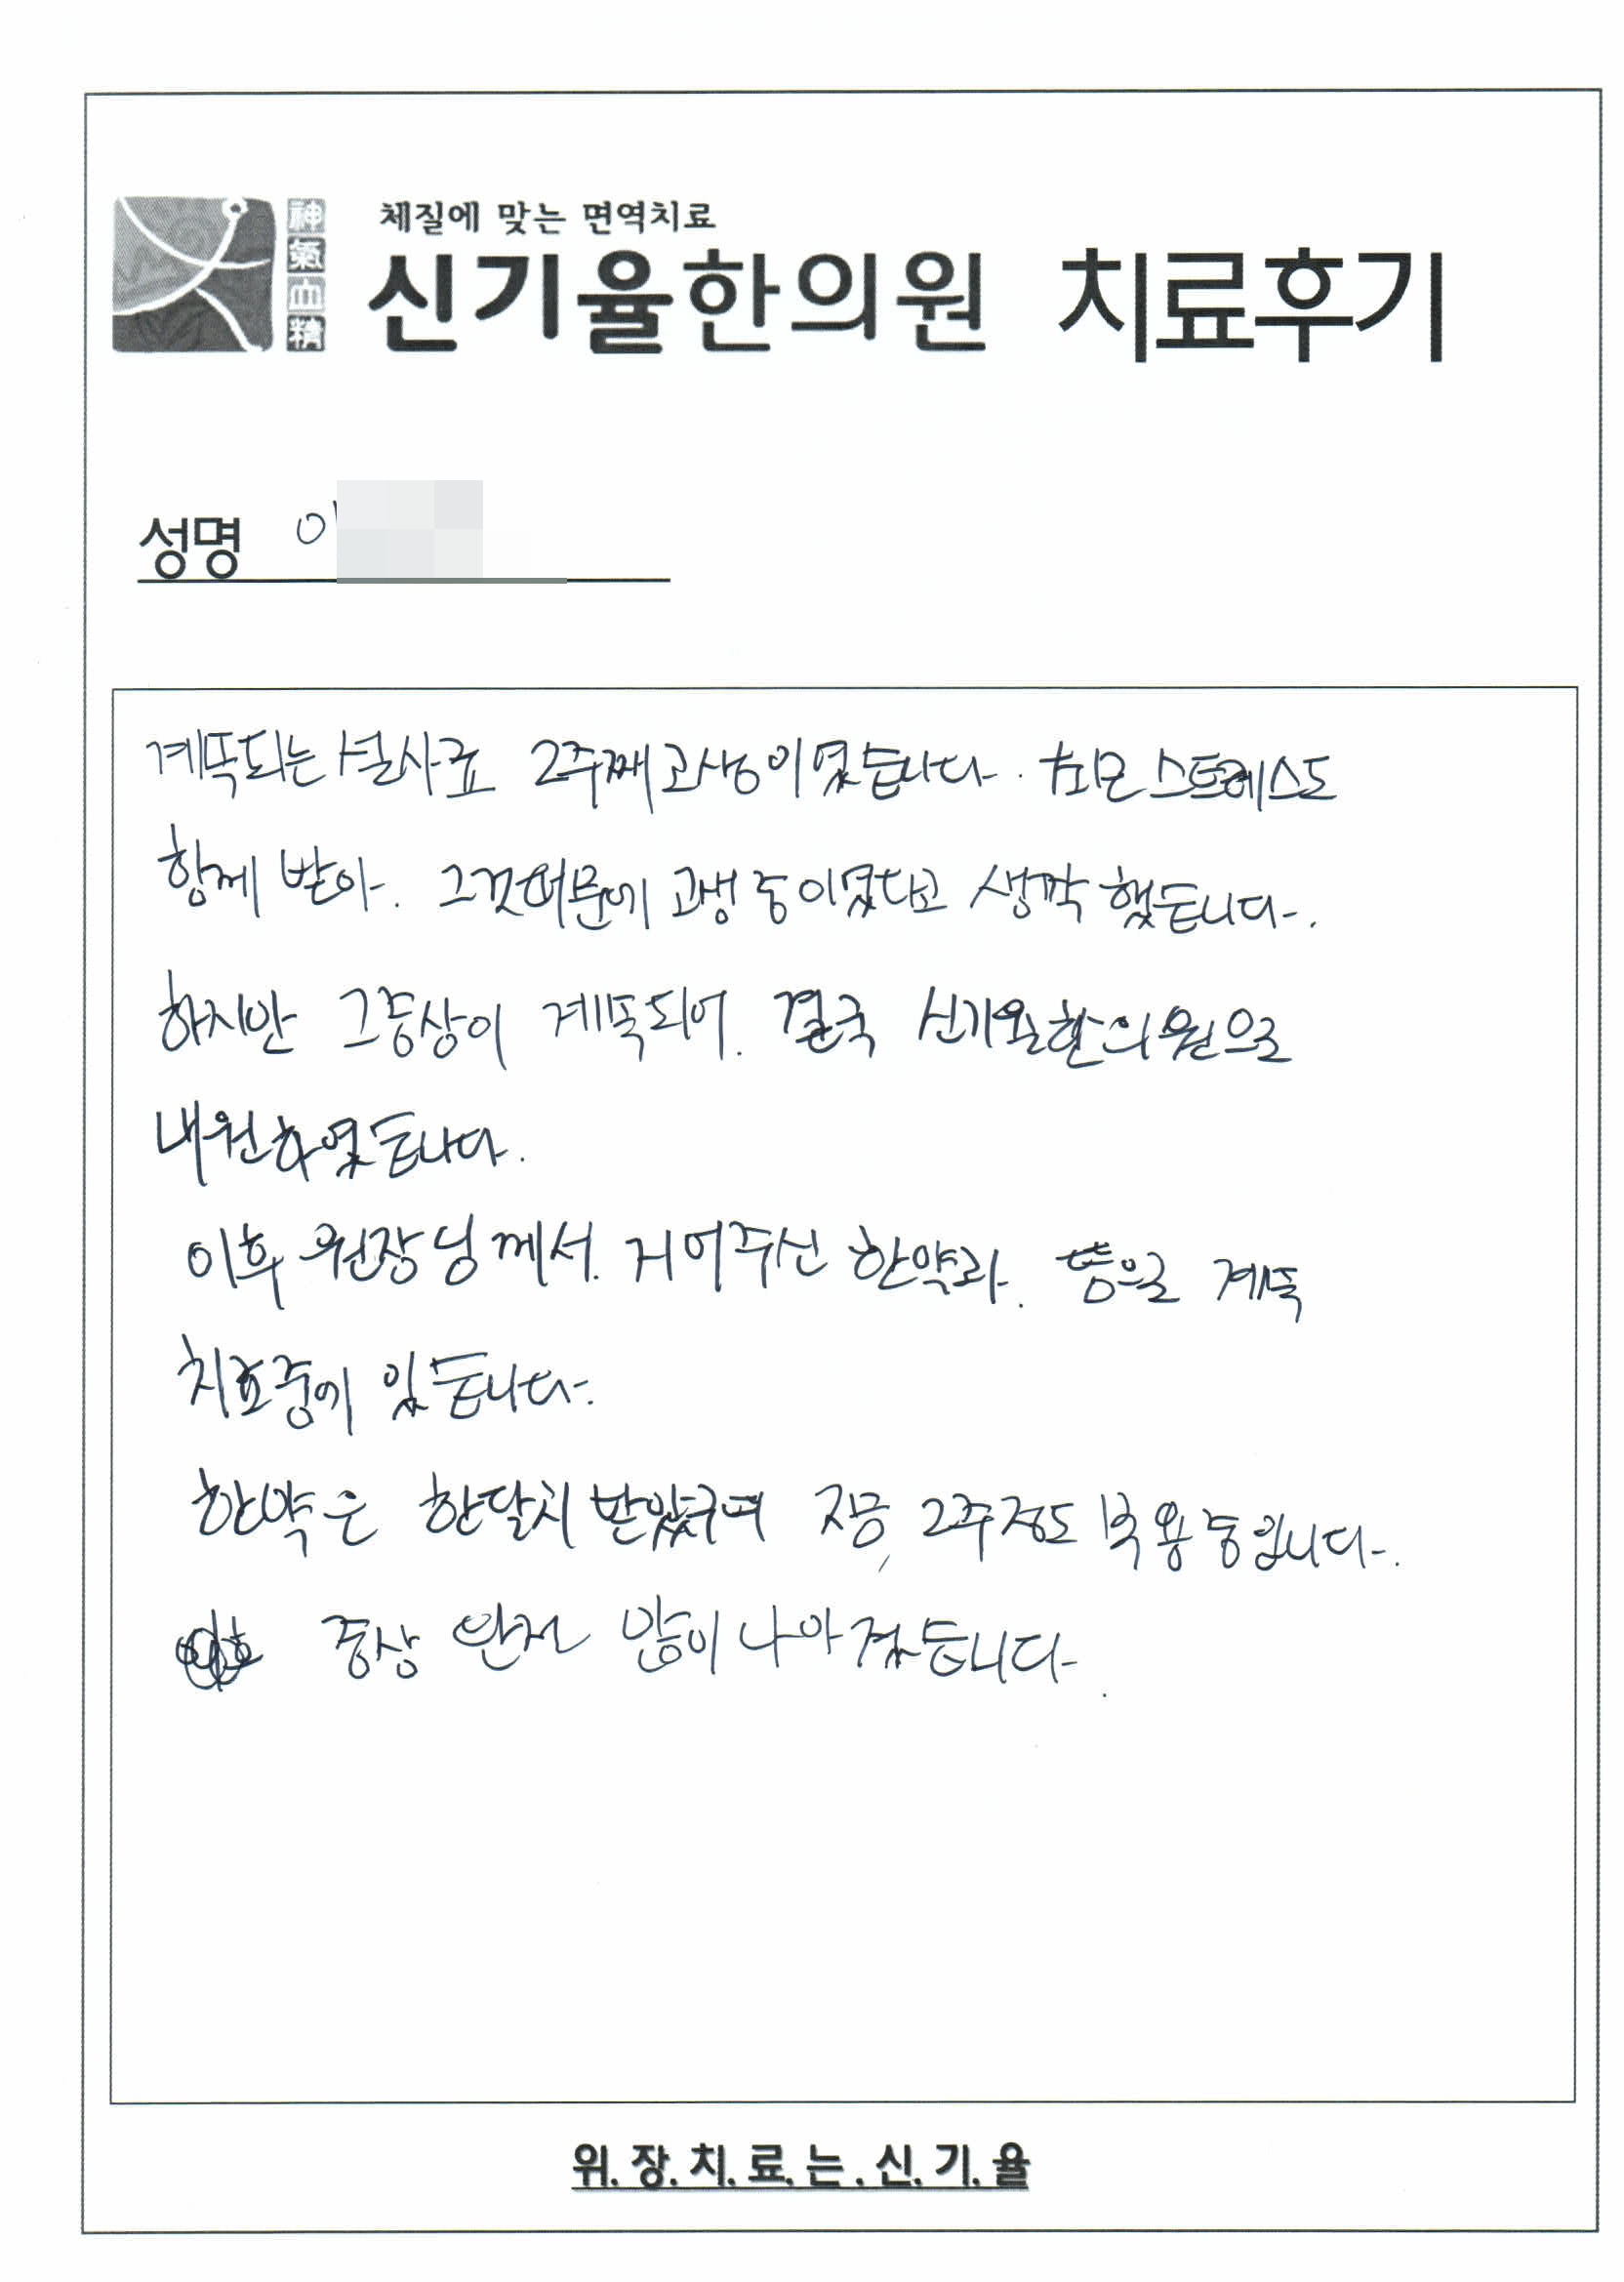 神
氣
血
精
체질에 맞는 면역치료
신기율한의원 치료후기
성명 이
계속되는 설사로 2주째 고생이였습니다. 최근 스트레스도
함께 받아. 그것때문에 고생중이였다고 생각했습니다.
하지만 그증상이 계속되어. 결국 신기율한의원으로
내원하였습니다.
이후 원장님께서. 지어주신 한약과. 뜸으로 계속
치료중에 있습니다.
한약은 한달치 받았구며 지금, 2주정도 복용중입니다.
증상 완전 많이 나아졌습니다.
위.장.치.료.는.신.기.율